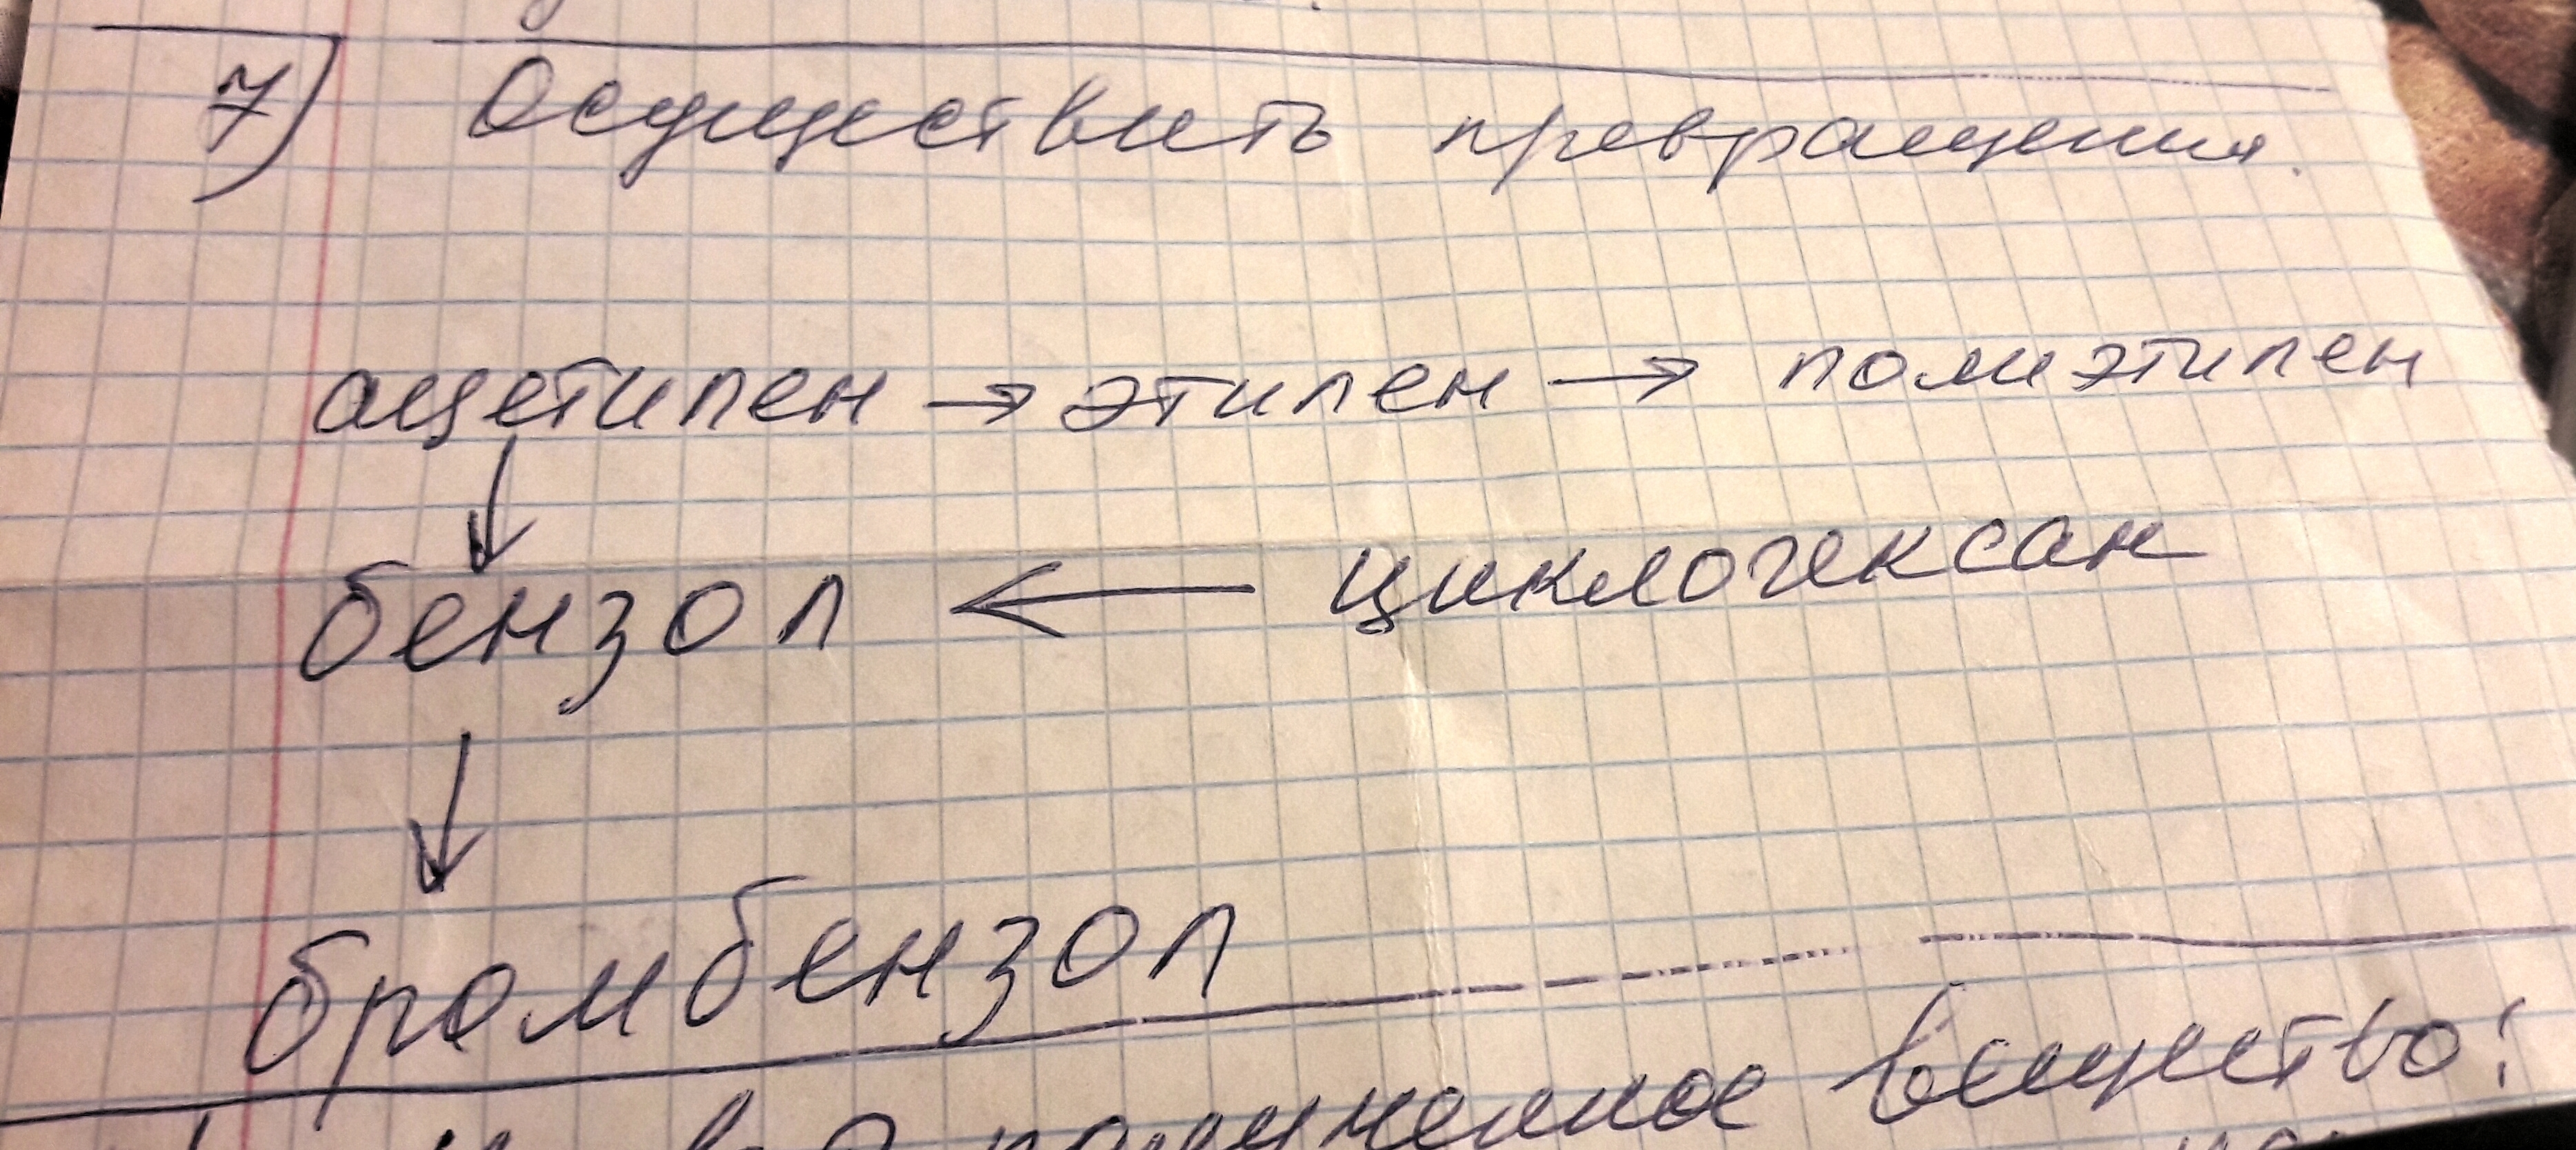 7) Осуществить превращения.
ацетилен → этилен → полиэтилен
↓
бензол ← циклогексан
↓
бромбензол
полученное вещество: